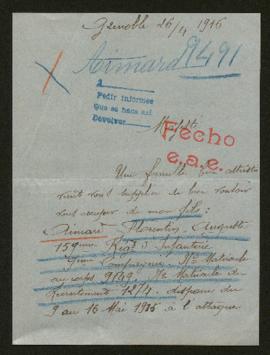 Grenoble 26/4 1916
Aimard 9491
A
Pedir informes
Que se haca así
Devolver
Fecho
e.a.e.
Une famille
vient vous supplier de bien vouloir
vous occuper de mon fils :
Aimard Florentin Auguste
159me Regt d'Infanterie
9me Compagnie Nº Matricule
au corps 9149 Nº Matricule du
Recrutement 1214 disparu du
9 au 16 Mai 1915 à l'attaque